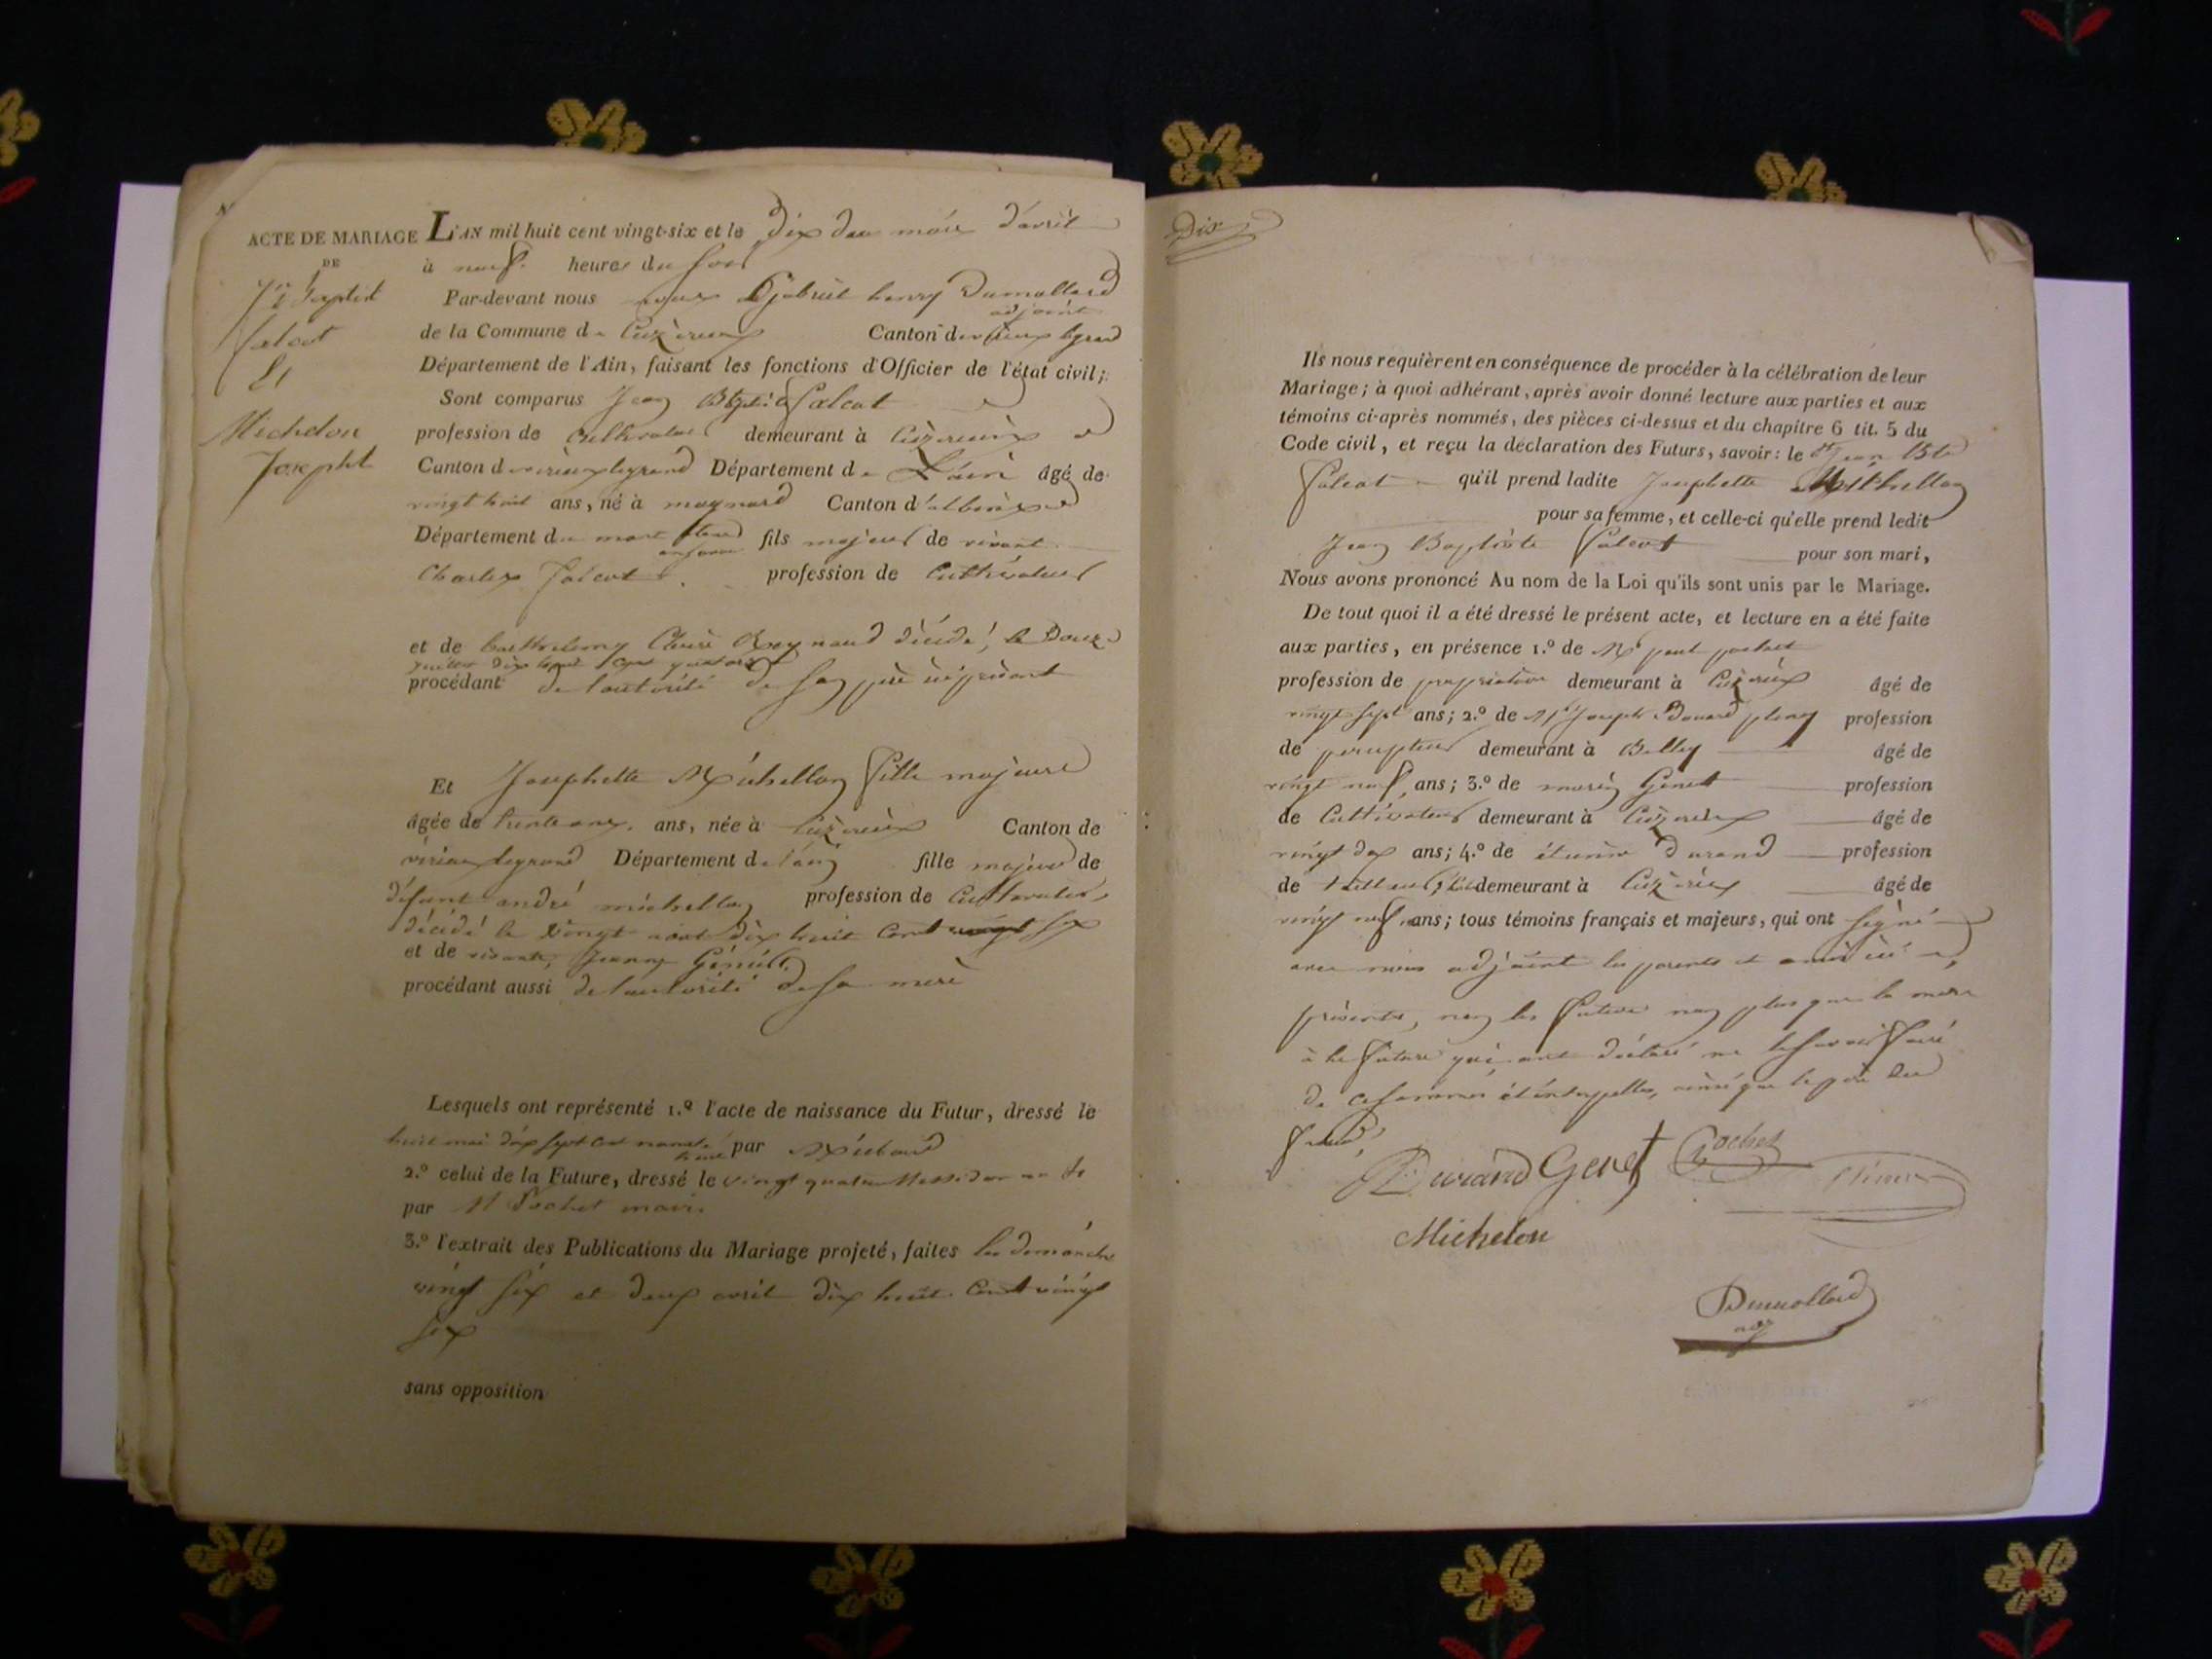 ACTE DE MARIAGE
DE
Jn Baptist
falcot
Et
Michelon
Josepht
L'AN mil huit cent vingt-six et le dix du mois d'avril
à neuf heures du soir
Par-devant nous Gjabriel henry Dumollard
adjoint
de la Commune de Cuzieux Canton de virieux legrand
Département de l'Ain, faisant les fonctions d'Officier de l'état civil;
Sont comparus Jean Bptiste falcot
profession de Cultivateur demeurant à Cuzieux
Canton de virieux legrand Département de L'ain âgé de
vingt huit ans, né à Canton d'albin
Département du mont blanc fils majeur de vivant
en savoie
Charles falcot profession de Cultivateur
et de Claire Reynaud décédé le Douze
procédant de l'autorité de son père ici présent
Et Josephette Michellon fille majeure
âgée de trente ans, ans, née à Cuzieux Canton de
virieu legrand Département de l'ain fille majeur de
défunt andré michellon profession de Cultivateur,
décédé le Vingt aout dix huit Cent vingt six
et de vivante, Jeanne Génét
procédant aussi de l'autorité de sa mere
Lesquels ont représenté 1.º l'acte de naissance du Futur, dressé le
huit mai dix sept cent par
2.º celui de la Future, dressé le vingt quatre Messidor an
par M Pochet maire
3.º l'extrait des Publications du Mariage projeté, faites les dimanche
vingt six et deux avril dix huit Cent vingt
six
sans opposition
Dix
Ils nous requièrent en conséquence de procéder à la célébration de leur
Mariage; à quoi adhérant, après avoir donné lecture aux parties et aux
témoins ci-après nommés, des pièces ci-dessus et du chapitre 6 tit. 5 du
Code civil, et reçu la déclaration des Futurs, savoir: le dt Jean Bte
falcot qu'il prend ladite Josephette Mithellon
pour sa femme, et celle-ci qu'elle prend ledit
Jean Baptiste falcot pour son mari,
Nous avons prononcé Au nom de la Loi qu'ils sont unis par le Mariage.
De tout quoi il a été dressé le présent acte, et lecture en a été faite
aux parties, en présence 1.º de Mr paul pochet
profession de propriétaire demeurant à Cuzieux âgé de
vingt sept ans; 2.º de Mr Joseph profession
de percepteur demeurant à Belley âgé de
vingt neuf ans; 3.º de marin Genet profession
de Cultivateur demeurant à Cuzieux âgé de
vingt dex ans; 4.º de étienne durand profession
de tailleur demeurant à Cuzieux âgé de
vingt neuf ans; tous témoins français et majeurs, qui ont signé
avec nous adjoint les parents et amis ici
présents, non les futurs non plus que la mere
à la future qui ont déclaré ne le savoir faire
de ce sommés et interpellés, ainsi que le père du
futur,
Durand Genet Pochet
Michelon
Dumollard
adj